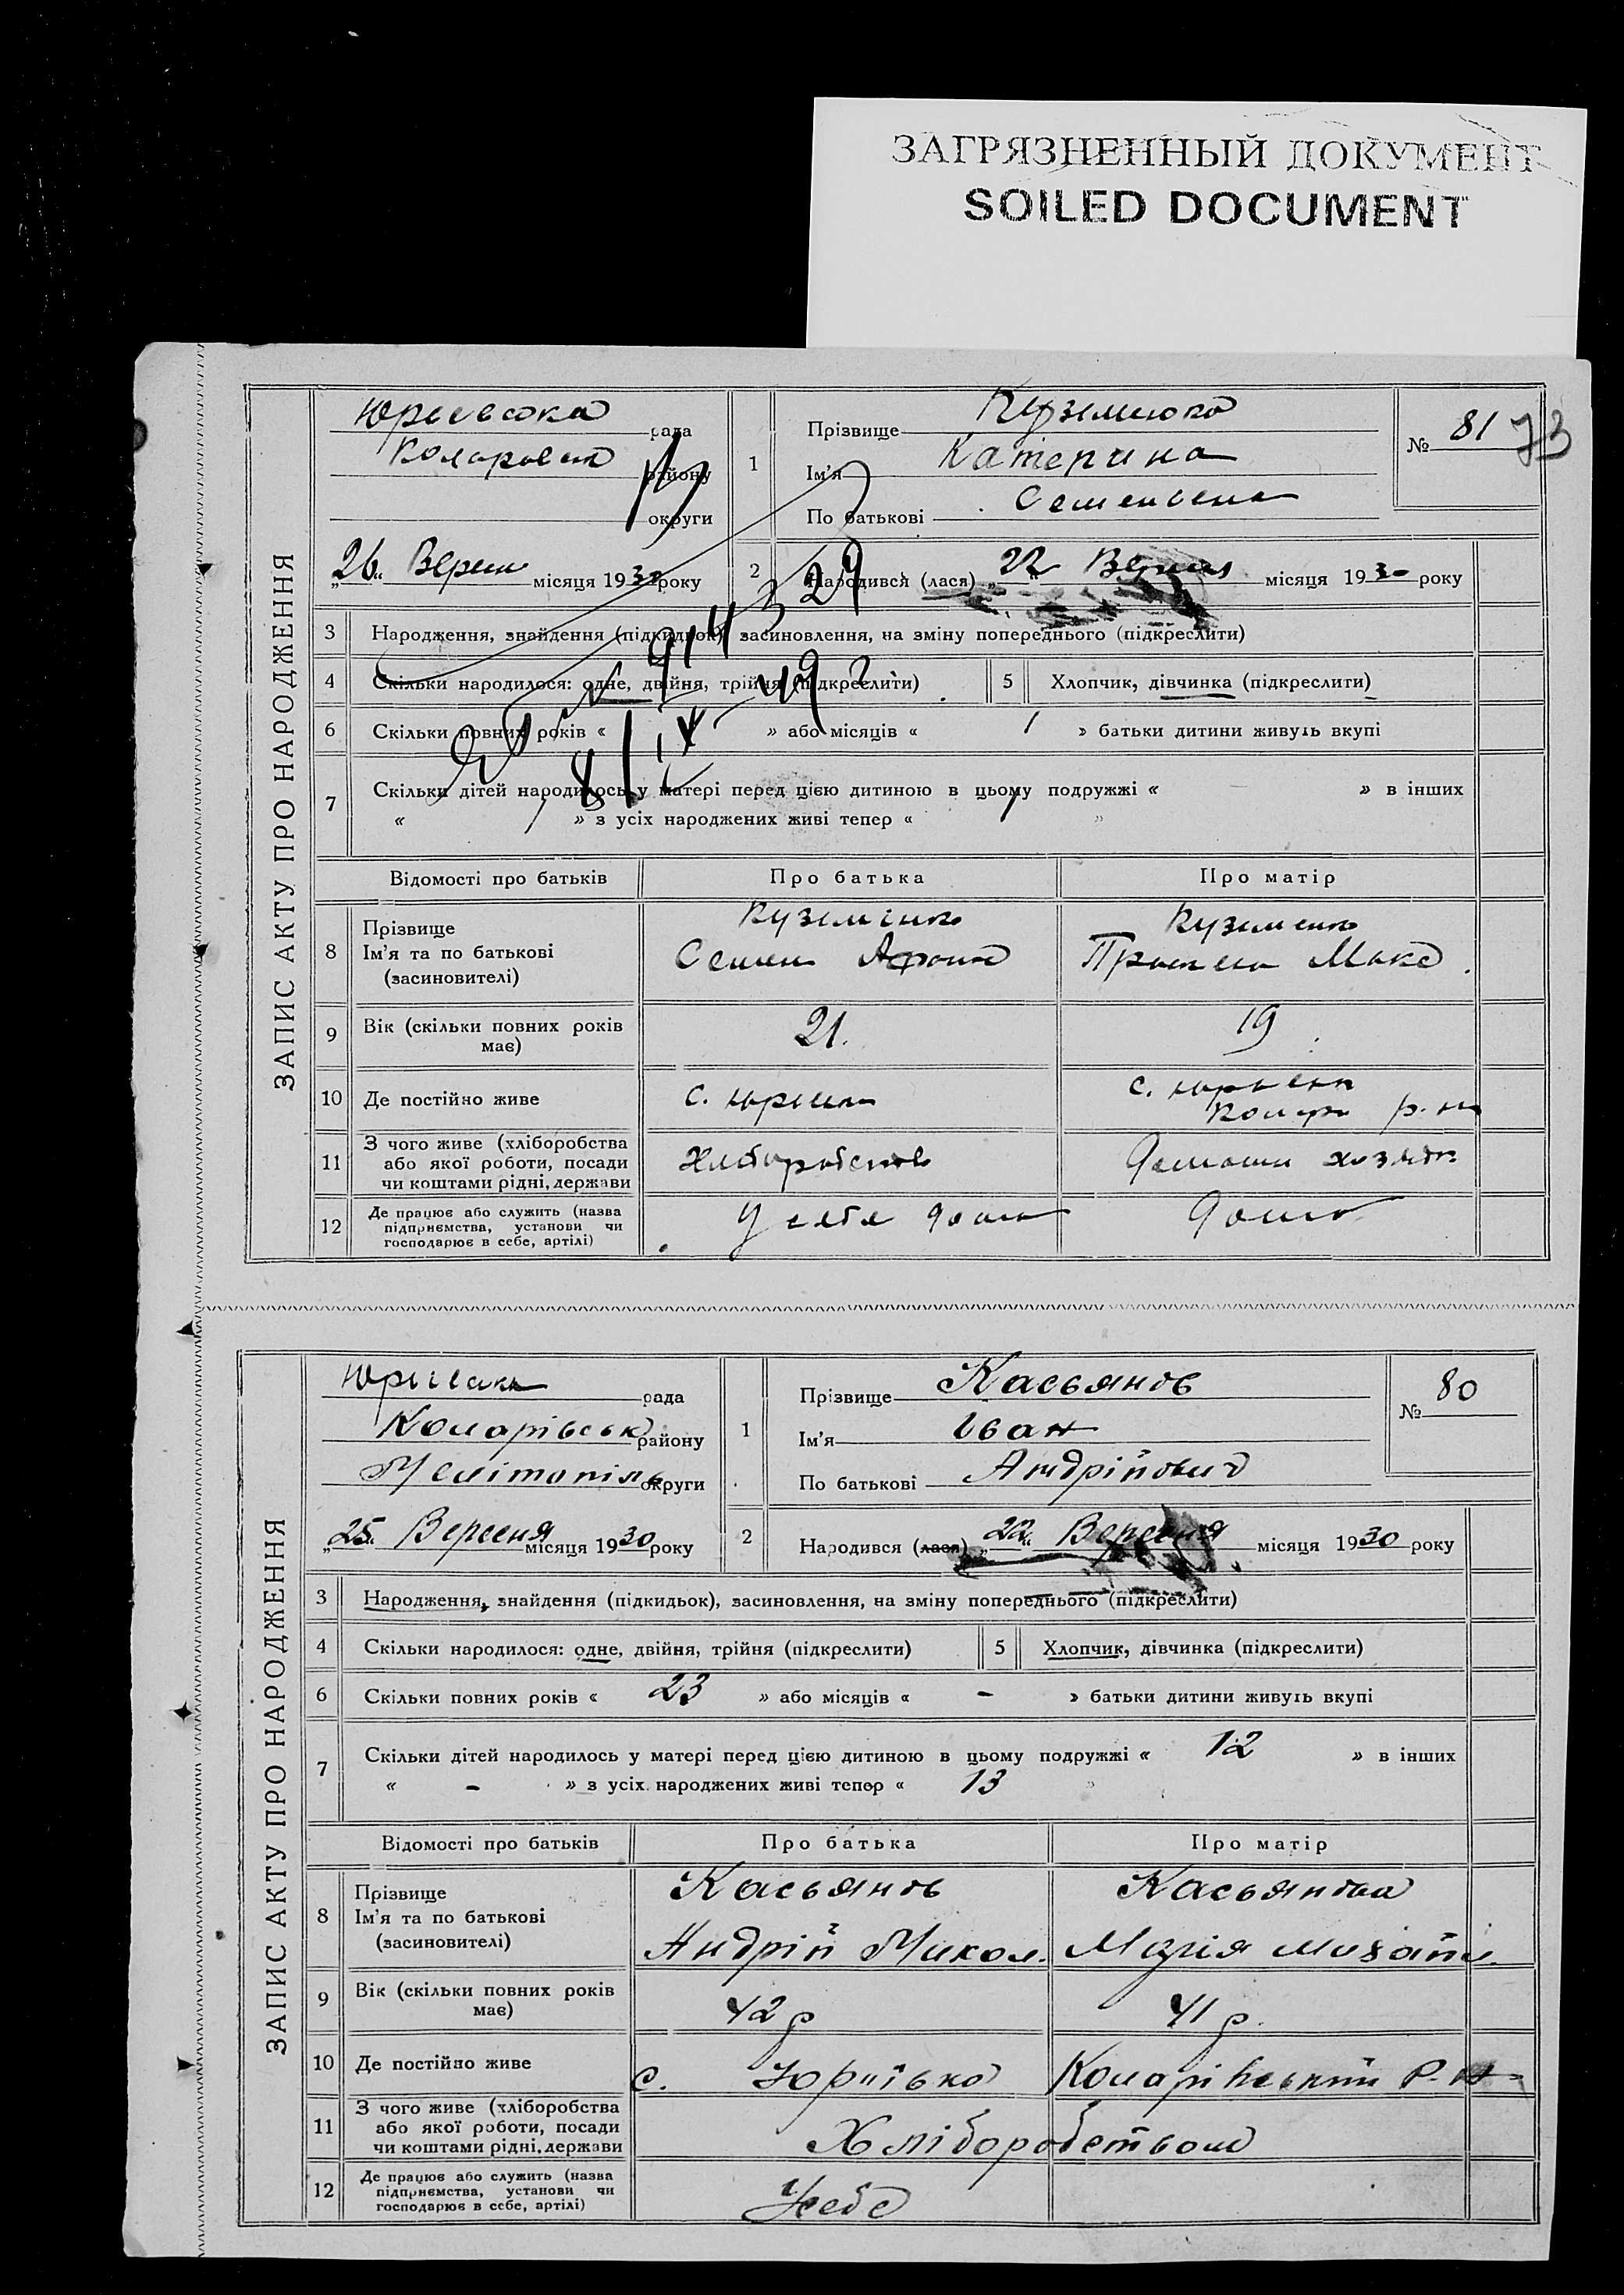 ЗАГРЯЗНЕННЫЙ ДОКУМЕНТ
SOILED DOCUMENT
ЗАПИС АКТУ ПРО НАРОДЖЕННЯ
Юріевска рада
району
округи
26 Вересн місяця 1930 року
1
Прізвище Кузьменко
Ім'я Катерина
По батькові Семеновна
№ 81 73
2 Народився (лася) „22“ місяця 1930 року
3 Народження, знайдення (підкидьок), засиновлення, на зміну попереднього (підкреслити)
4 Скільки народилося: одне, двійня, трійня (підкреслити)
5 Хлопчик, дівчинка (підкреслити)
6 Скільки повних років « » або місяців « » батьки дитини живуть вкупі
7 Скільки дітей народилось у матері перед цією дитиною в цьому подружжі « » в інших
« » з усіх народжених живі тепер « »
Відомості про батьків Про батька Про матір
8 Прізвище
Ім'я та по батькові
(засиновителі)
Кузьменко
Семен Афона
Кузьменко
Макс
9 Вік (скільки повних років
має)
21.
19
10 Де постійно живе
с.
с.
р.н
11 З чого живе (хліборобства
або якої роботи, посади
чи коштами рідні, держави
Хліборобство
12 Де працює або служить (назва
підприємства, установи чи
господарює в себе, артілі)
У себе дома
дома
ЗАПИС АКТУ ПРО НАРОДЖЕННЯ
рада
району
Мелітопіль округи
„25“ Вересня місяця 1930 року
1
Прізвище Касьянов
Ім'я Іван
По батькові Андрійович
№ 80
2 Народився (лася) „22“ Вересня місяця 1930 року
3 Народження, знайдення (підкидьок), засиновлення, на зміну попереднього (підкреслити)
4 Скільки народилося: одне, двійня, трійня (підкреслити)
5 Хлопчик, дівчинка (підкреслити)
6 Скільки повних років « 23 » або місяців « - » батьки дитини живуть вкупі
7 Скільки дітей народилось у матері перед цією дитиною в цьому подружжі « 12 » в інших
« - » з усіх народжених живі тепер « 13 »
Відомості про батьків Про батька Про матір
8 Прізвище
Ім'я та по батькові
(засиновителі)
Касьянов
Андрій Микол.
Касьянова
Марія Михайл.
9 Вік (скільки повних років
має)
42 р
41 р.
10 Де постійно живе
с. Юріївка Коларівський Р-н
11 З чого живе (хліборобства
або якої роботи, посади
чи коштами рідні, держави
Хліборобством
12 Де працює або служить (назва
підприємства, установи чи
господарює в себе, артілі)
У себе